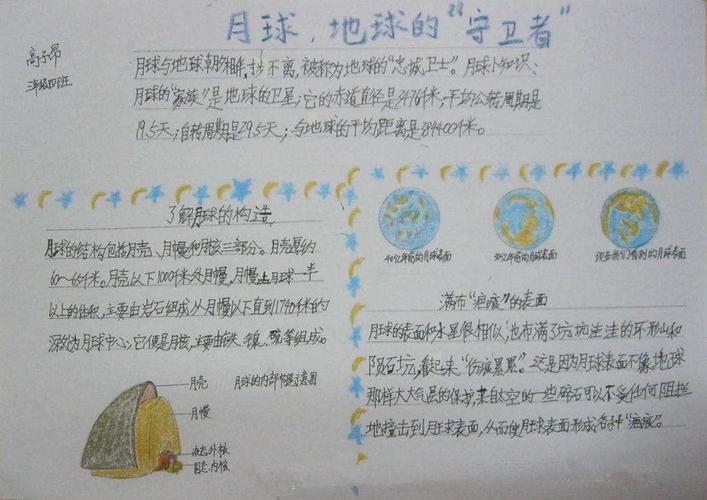 月球，地球的“守卫者”
高子昂
三年级四班
月球与地球朝夕相，步不离，被称为地球的“忠诚卫士”。月球小知识：
月球的“家族”是地球的卫星；它的赤道直径是3476千米；平均公转周期是
19.5天；自转周期是29.5天；与地球的平均距离是384400千米。
了解月球的构造
月球的结构包括月壳、月幔和月核三部分。月壳是约
60～65千米。月壳以下1000千米为月幔，月幔占月球一半
以上的体积，主要由岩石组成。从月幔以下直到1740千米的
深处为月球中心，它便是月核，主要由铁、镍、硫等组成。
月壳
月球的内部构造示意图
月幔
液态外核
固态内核
40亿年前的月球表面
38亿年前的月球表面
现在我们看到的月球表面
满布“疤痕”的表面
月球的表面和水星很相似，也布满了坑坑洼洼的环形山和
陨石坑，看起来“伤痕累累”。这是因为月球表面不像地球
那样大大气层的保护，来自太空的一些碎石可以不受任何阻拦
地撞击到月球表面，从而使月球表面形成各种“疤痕”。